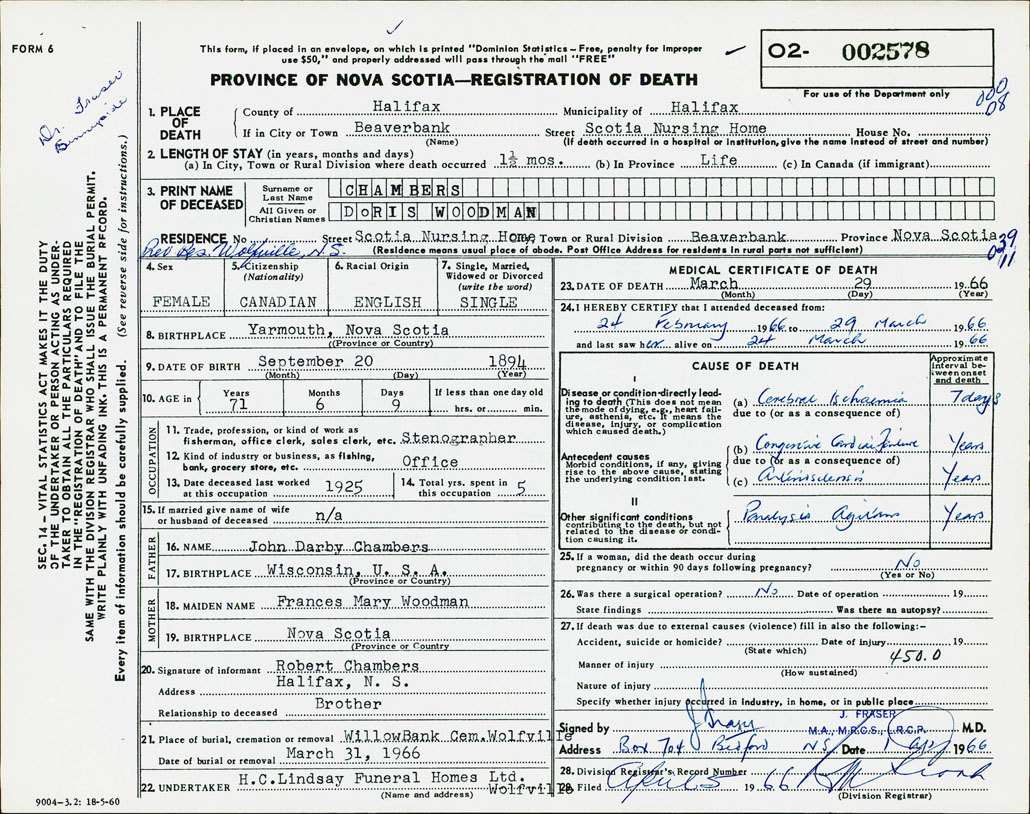 FORM 6
This form, if placed in an envelope, on which is printed "Dominion Statistics – Free, penalty for improper
use $50," and properly addressed will pass through the mail "FREE"
PROVINCE OF NOVA SCOTIA—REGISTRATION OF DEATH
O2- 002578
For use of the Department only
000
08
Dr. Fraser
Sunnyside
SEC. 14 – VITAL STATISTICS ACT MAKES IT THE DUTY
OF THE UNDERTAKER OR PERSON ACTING AS UNDER-
TAKER TO OBTAIN ALL THE PARTICULARS REQUIRED
IN THE "REGISTRATION OF DEATH" AND TO FILE THE
SAME WITH THE DIVISION REGISTRAR WHO SHALL ISSUE THE BURIAL PERMIT.
WRITE PLAINLY WITH UNFADING INK. THIS IS A PERMANENT RECORD.
Every item of information should be carefully supplied. (See reverse side for instructions.)
1. PLACE OF DEATH
County of Halifax Municipality of Halifax
If in City or Town Beaverbank Street Scotia Nursing Home House No.
(Name) (If death occurred in a hospital or institution, give the name instead of street and number)
2. LENGTH OF STAY (in years, months and days)
(a) In City, Town or Rural Division where death occurred 1½ mos. (b) In Province Life (c) In Canada (if immigrant)
3. PRINT NAME OF DECEASED
Surname or Last Name CHAMBERS
All Given or Christian Names DORIS WOODMAN
RESIDENCE No Street Scotia Nursing Home City, Town or Rural Division Beaverbank Province Nova Scotia
Rev Res. Wolfville, N.S. (Residence means usual place of abode. Post Office Address for residents in rural parts not sufficient)
39
11
4. Sex FEMALE
5. Citizenship (Nationality) CANADIAN
6. Racial Origin ENGLISH
7. Single, Married, Widowed or Divorced (write the word) SINGLE
8. BIRTHPLACE Yarmouth, Nova Scotia
(Province or Country)
9. DATE OF BIRTH September 20 1894
(Month) (Day) (Year)
10. AGE in Years 71 Months 6 Days 9 If less than one day old hrs. or min.
OCCUPATION
11. Trade, profession, or kind of work as
fisherman, office clerk, sales clerk, etc. Stenographer
12. Kind of industry or business, as fishing,
bank, grocery store, etc. Office
13. Date deceased last worked at this occupation 1925
14. Total yrs. spent in this occupation 5
15. If married give name of wife
or husband of deceased n/a
FATHER
16. NAME John Darby Chambers
17. BIRTHPLACE Wisconsin, U. S. A.
(Province or Country)
MOTHER
18. MAIDEN NAME Frances Mary Woodman
19. BIRTHPLACE Nova Scotia
(Province or Country
20. Signature of informant Robert Chambers
Address Halifax, N. S.
Relationship to deceased Brother
21. Place of burial, cremation or removal WillowBank Cem. Wolfville
Date of burial or removal March 31, 1966
22. UNDERTAKER H.C.Lindsay Funeral Homes Ltd.
(Name and address) Wolfville
9004–3.2: 18-5-60
MEDICAL CERTIFICATE OF DEATH
23. DATE OF DEATH March 29 1966
(Month) (Day) (Year)
24. I HEREBY CERTIFY that I attended deceased from:
24 February 1966 to 29 March 1966
and last saw her alive on 24 March 1966
CAUSE OF DEATH
Approximate interval between onset and death
I
Disease or condition directly leading to death (This does not mean the mode of dying, e.g., heart failure, asthenia, etc. It means the disease, injury, or complication which caused death.)
(a) Cerebral Ischaemia 7 days
due to (or as a consequence of)
Antecedent causes
Morbid conditions, if any, giving rise to the above cause, stating the underlying condition last.
(b) Congestive Cardiac Failure Years
due to (or as a consequence of)
(c) Arteriosclerosis Years
II
Other significant conditions
contributing to the death, but not related to the disease or condition causing it.
Paralysis Agitans Years
25. If a woman, did the death occur during
pregnancy or within 90 days following pregnancy? No
(Yes or No)
26. Was there a surgical operation? No Date of operation 19
State findings Was there an autopsy?
27. If death was due to external causes (violence) fill in also the following:–
Accident, suicide or homicide? Date of injury 19
(State which)
450.0
Manner of injury
(How sustained)
Nature of injury
Specify whether injury occurred in industry, in home, or in public place
Signed by J Fraser J. FRASER M.D.
M.A., M.R.C.S., L.R.C.P.
Address Box 704 Bedford NS Date 1 Apr 1966
28. Division Registrar's Record Number
29. Filed April 5 1966
(Division Registrar)